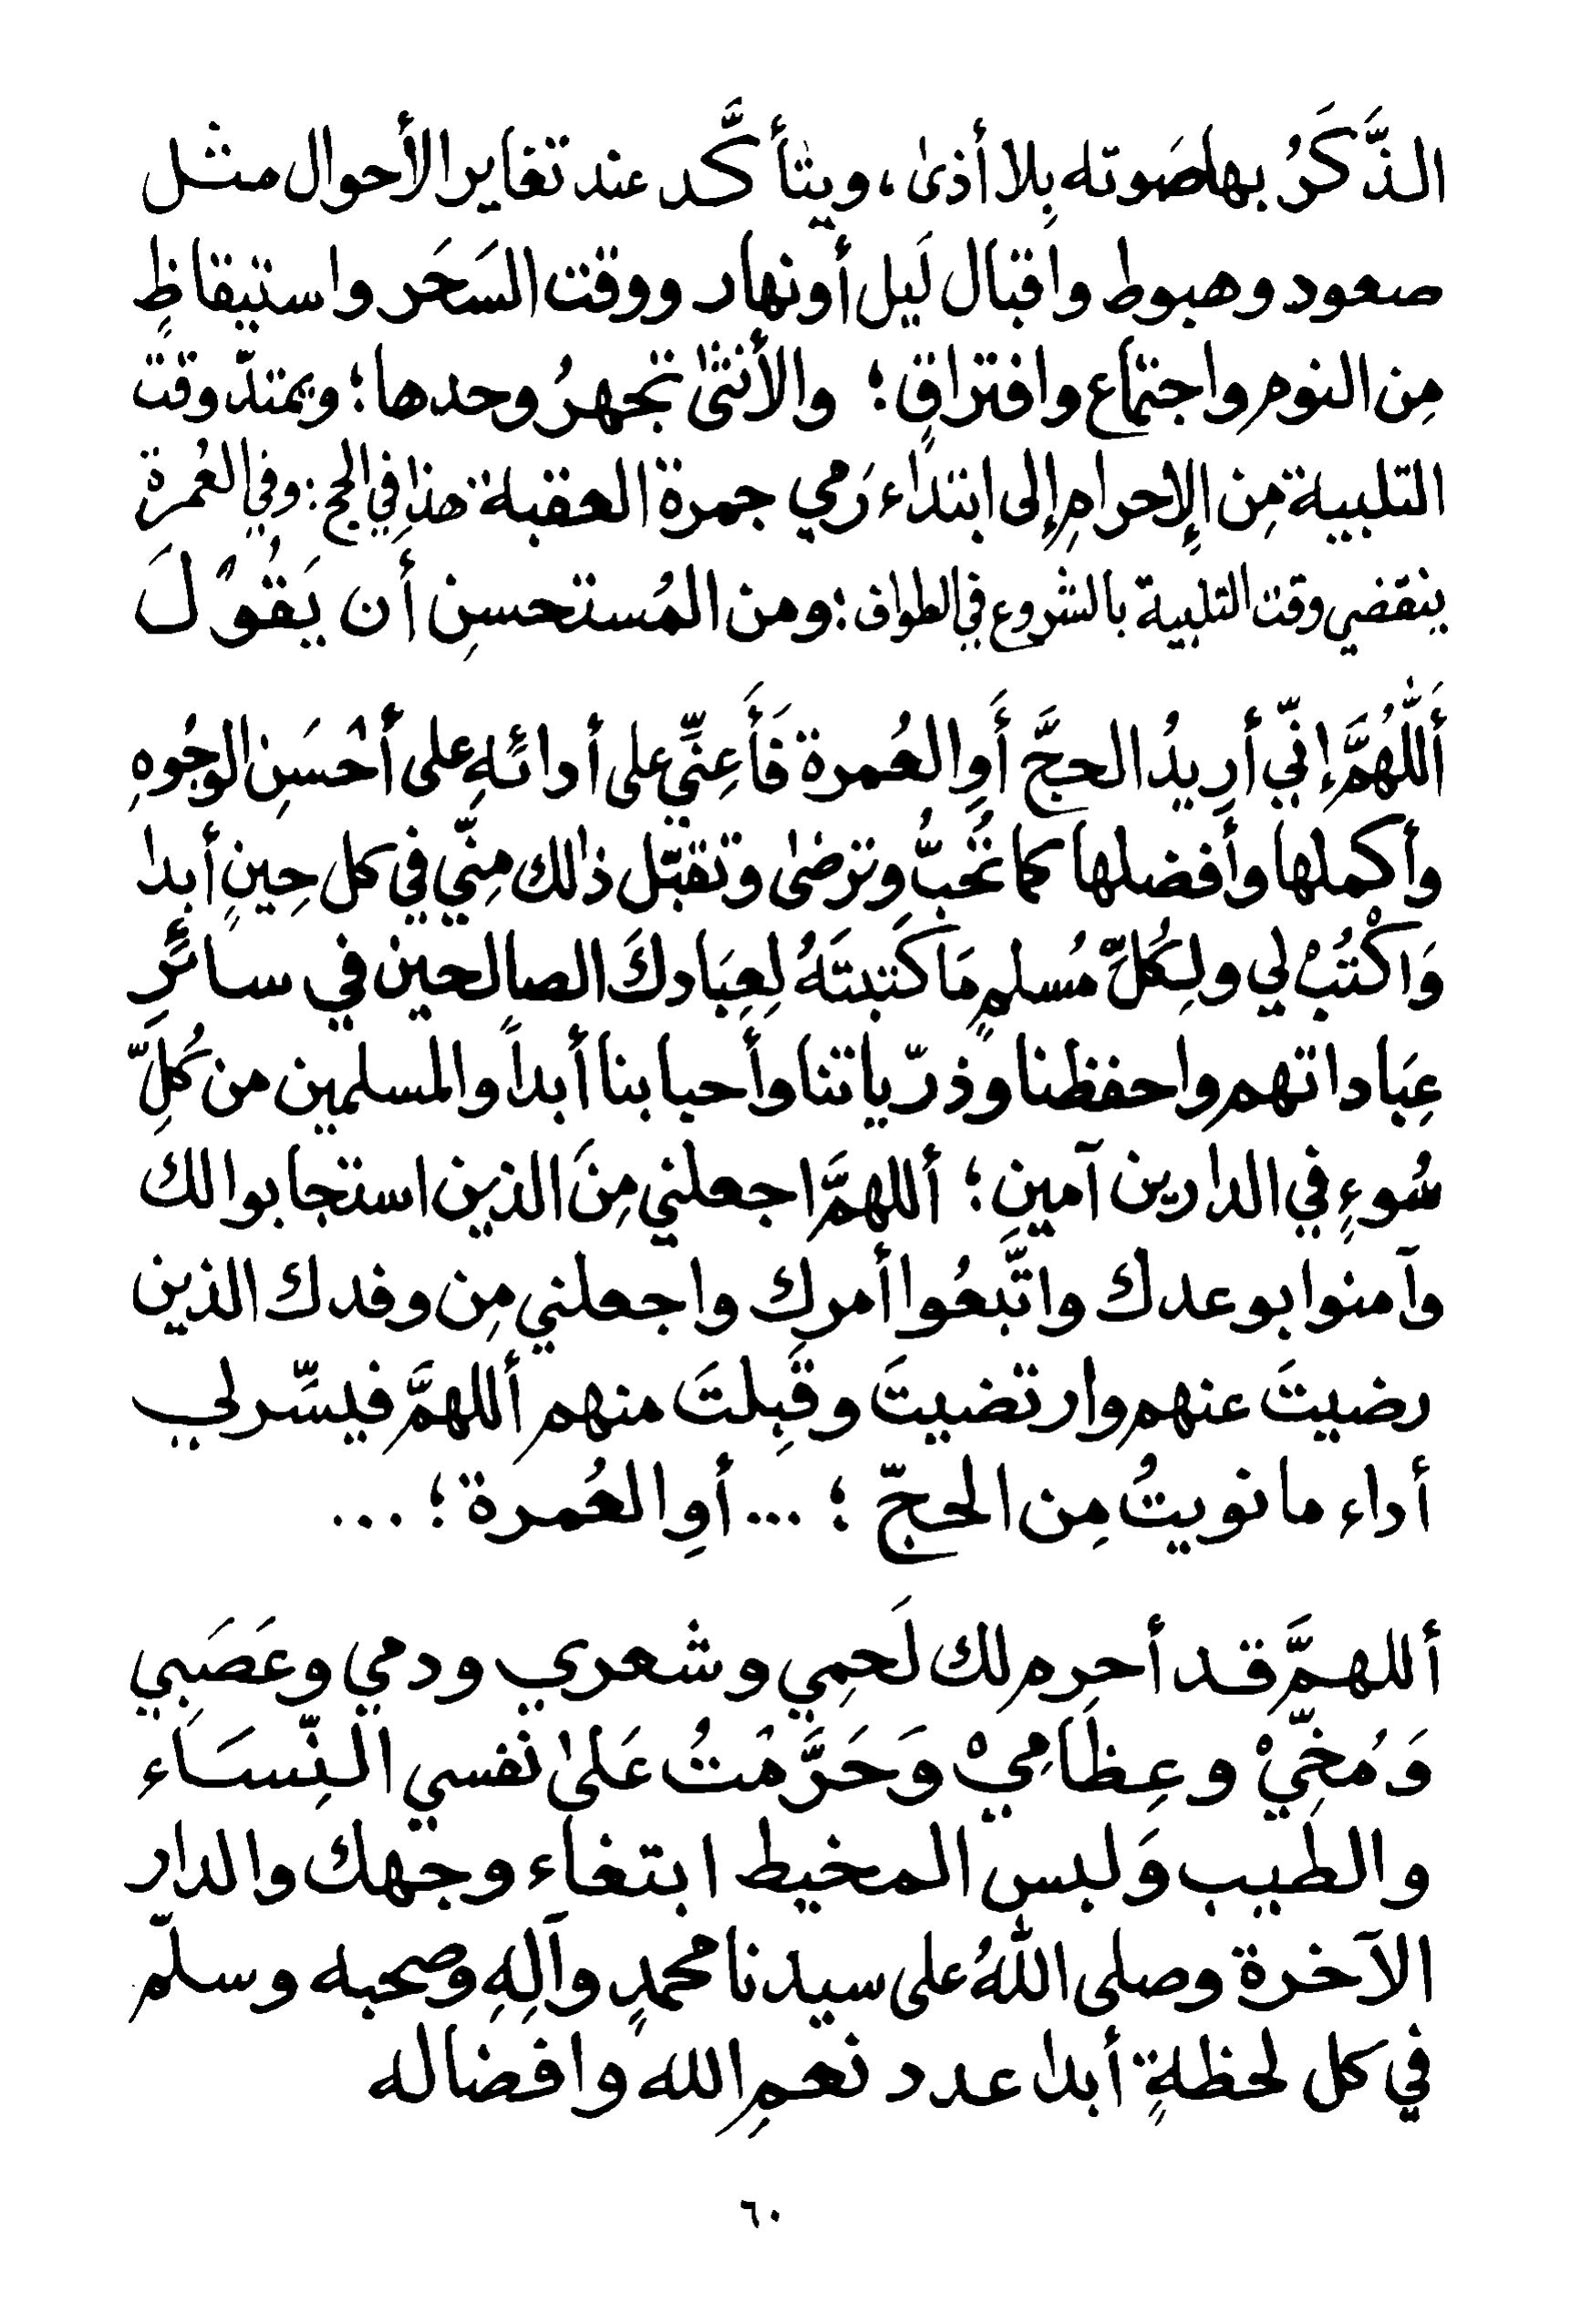 الـذَّكَرُ بهاصَوته بِلا أذىٰ ، ويتأكَّد عند تغاير الأحوال مثـل
صعود وهبوط واقبال لَيل أونهار ووقت السَحَر واستيقاظٍ
مِن النومِ واجتماع وافتراقٍ؛ والأنثىٰ تجهرُ وحدها؛ ويمتدّ وقت
التلبية مِن الإِحرامِ إِلى ابتداء رَمي جمرة العقبة هذا في الحج : وفي العُمرة
ينقضي وقت التلبية بالشروع في الطواف : ومن المُستحسنِ أن يَقُوْلَ
أَللّٰهُمَّ إِنّي أرِيدُ الحجَّ أَوِ العُمرة فَأَعِنِّي على أدائهِ على أحْسَنِ الوجُوهِ
وأكملها وأفضلها كما تُحِبُّ وترضىٰ وتقبّل ذٰلك مِنّي في كل حِينٍ أبدا
وَاكْتُبْ لي ولِكُلِّ مُسلمٍ مَا كَتبتَهُ لِعِبَادكَ الصالحين في سائرِ
عِبَاداتهم واحفظنا وذرّياتنا وأحبابنا أبداً والمسلمين من كُلِّ
سُوءٍ في الدارين آمين ؛ أللهمَّ اجعلني مِنَ الذين استجابوا لك
وآمنوا بوعدك واتَّبعُوا أمرك واجعلني مِن وفدك الذين
رضيتَ عنهم وارتضيتَ وقَبِلتَ منهم أللهمَّ فيسِّر لي
أداء ما نويتُ مِن الحجّ ؛ ... أوِ العُمرة ؛ ...
أللهمَّ قد أحرم لك لَحمِي وشعري ودمي وعَصَبِي
وَمُخِّيْ وعِظَامِيْ وَحَرَّمْتُ عَلىٰ نفسي النِّسَاءِ
والطيب وَلبس المخيط ابتغاء وجهك والدار
الآخرة وصلى اللهُ على سيدنا محمدٍ وآلِهِ وصحبه وسلّم
في كل لحظةٍ أبدا عدد نعمِ الله وافضاله
٦٠